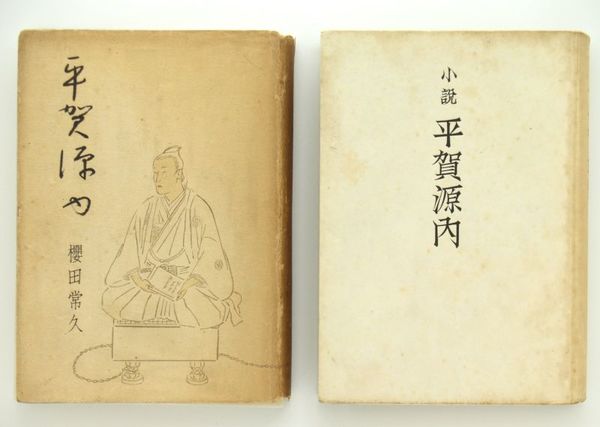 平賀源内
櫻田常久
小説
平賀源内